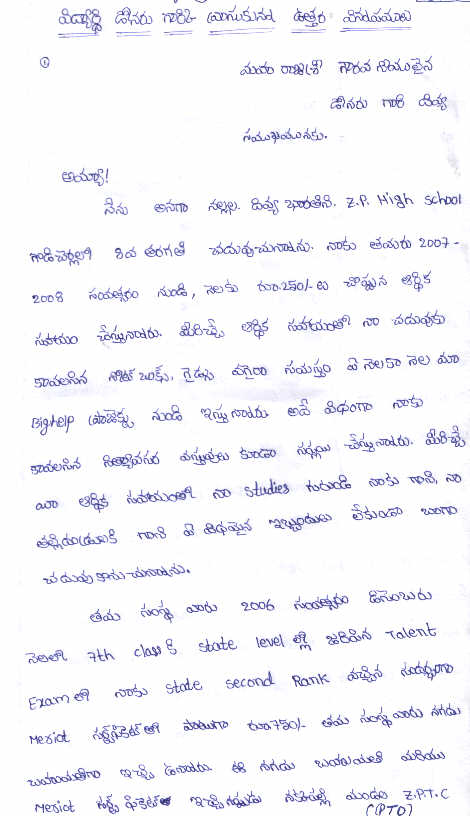 విద్యార్థి డోనరు గారికి వ్రాసుకున్న ఉత్తర వినయములు
①
మహా రాజశ్రీ గౌరవ నీయులైన
డోనరు గారి దివ్య
సముఖమునకు.
అయ్యా!
నేను అనగా నల్లల. దివ్య భారతిని. Z.P. High school
గొడిచెర్లలో 8వ తరగతి చదువుచున్నాను. నాకు తమరు 2007-
2008 సంవత్సరం నుండి, నెలకు రూ.250/- ల చొప్పున ఆర్థిక
సహాయం చేస్తున్నారు. మీరిచ్చే ఆర్థిక సహాయంతో నా చదువుకు
కావలసిన నోట్ బుక్స్, గైడ్సు వగైరా సమస్తం ఏ నెలకా నెల మా
Bighelp ప్రాజెక్టు నుండి ఇస్తున్నారు అదే విధంగా నాకు
కావలసిన నిత్యావసర వస్తువులు కూడా సప్లయి చేస్తున్నారు. మీరిచ్చే
యీ ఆర్థిక సహాయంతో నా studies గురించి నాకు గాని, నా
తల్లిదండ్రులకి గాని ఏ విధమైన ఇబ్బందులు లేకుండా బాగా
చదువుకొనుచున్నాను.
తమ సంస్థ వారు 2006 సంవత్సరం డిసెంబరు
నెలలో 7th class కి state level లో జరిపిన Talent
Exam లో నాకు state second Rank వచ్చిన సందర్భంగా
Meriot సర్టిఫికెట్ తో పాటుగా రూ750/- తమ సంస్థ వారు నగదు
బహుమతిగా ఇచ్చి ఉన్నారు. ఈ నగదు బహుమతి మరియు
Meriot సర్టిఫికెట్ ఇచ్చినప్పుడు మండల Z.P.T.C
(PTO)